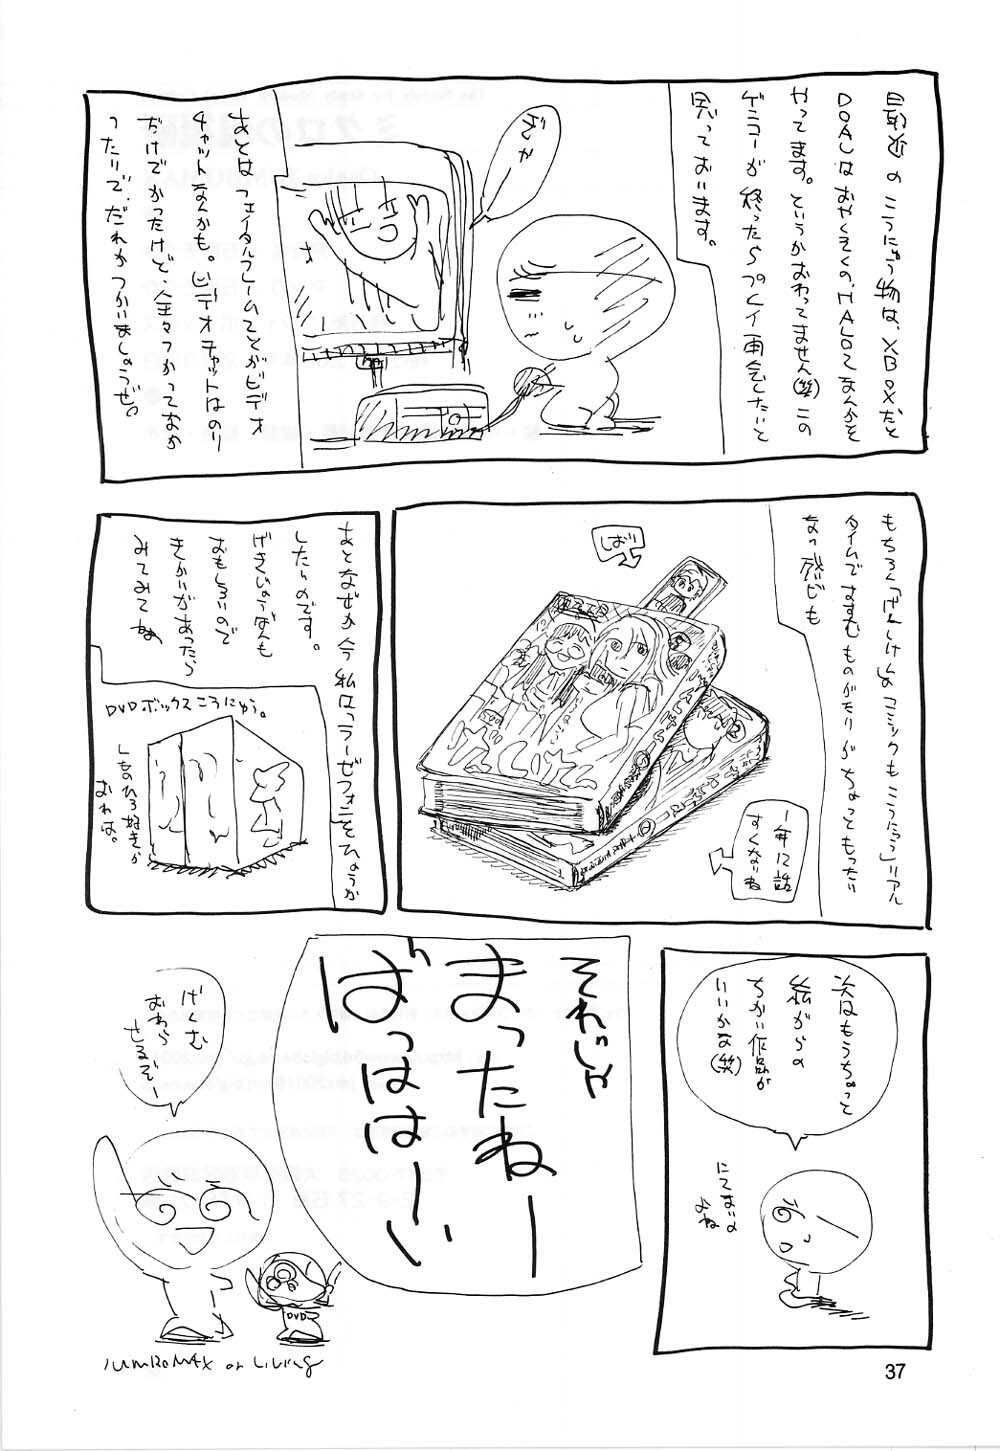 最近のこうにゅう物は、XBOXだと
DOAUはおやくそくの、HALOてなんかを
やってます。というかおわってません(笑)この
ゲンコーが終ったらプレイ再会したいと
思っております。
あとは フェイタルフレームてとかビデオ
チャットなんかも。ビデオチャットはのり
だけでかったけど、全々つかっておか
ったりで、だれかつかいましょうぜ。
もちろん「げんしけん」のコミックもこうにゅう」リアル
タイムですすむものがたりがちょっともったい
ない感じも
しおり
1年12話
すくないね
あとなぜか今 私はラーゼフォンをひょうか
したいのです。
げきじょうばんも
おもしろいので
きかいがあったら
みてみてね
DVDボックスこうにゅう。
しものひろ好きが
おれは。
次はもうちょっと
絵がらの
ちかい作品が
いいかな(笑)
にてないの
よね
それじゃ
まったねー
ばっはは〜い
げーむ
おわら
せるぞー
DVD
37